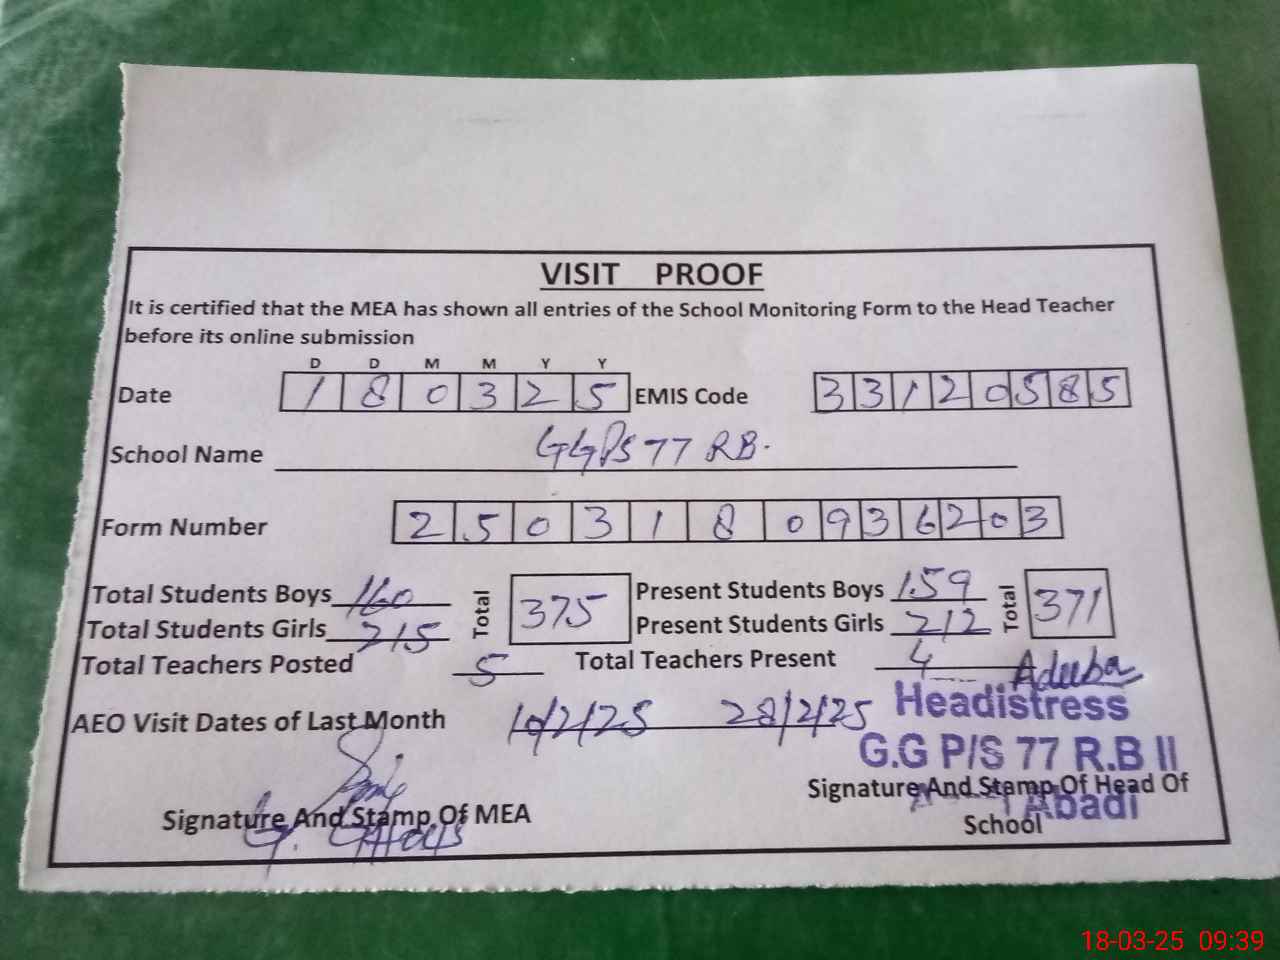 VISIT PROOF
It is certified that the MEA has shown all entries of the School Monitoring Form to the Head Teacher
before its online submission
D D M M Y Y
Date 1 8 0 3 2 5 EMIS Code 3 3 1 2 0 5 8 5
School Name GGPS 77 RB.
Form Number 2 5 0 3 1 8 0 9 3 6 2 0 3
Total Students Boys 160 Total 375 Present Students Boys 159 Total 371
Total Students Girls 215 Present Students Girls 212
Total Teachers Posted 5 Total Teachers Present 4
Adeeba
AEO Visit Dates of Last Month 10/2/25 28/2/25
Headistress
G.G P/S 77 R.B II
Abadi
Signature And Stamp Of MEA
Signature And Stamp Of Head Of
School
18-03-25 09:39